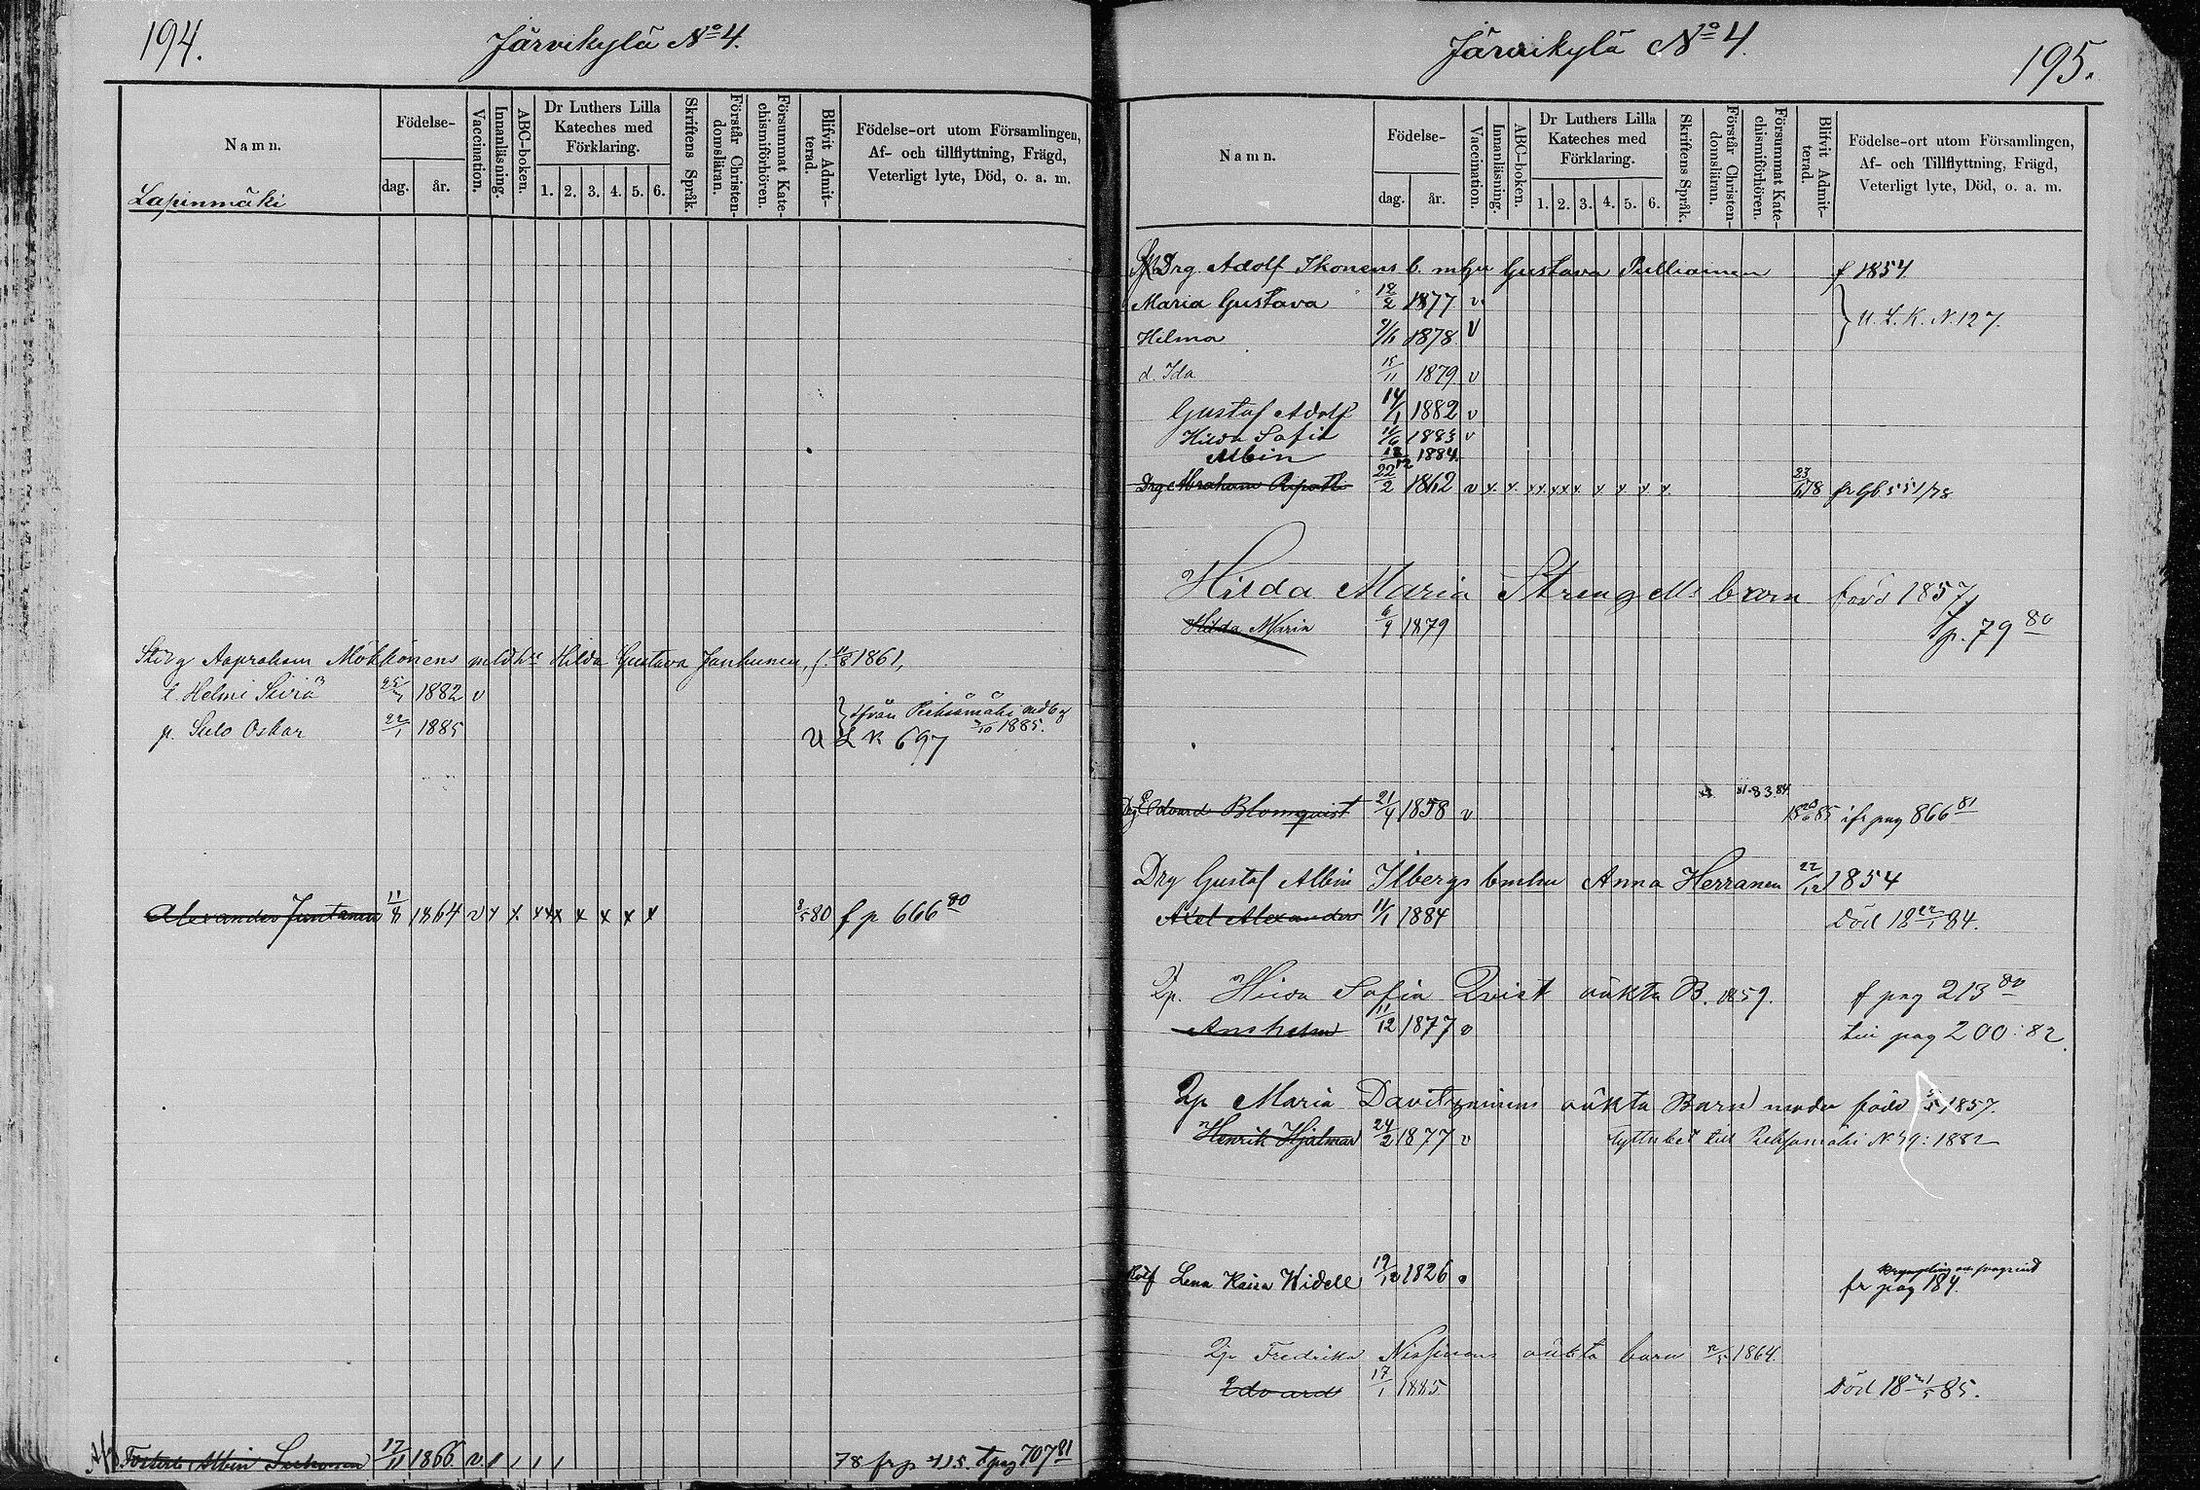 194.
Järvikylä No 4.
Namn.
Födelse-
dag.
år.
Vaccination.
Innanläsning.
ABC-boken.
Dr Luthers Lilla
Kateches med
Förklaring.
1. 2. 3. 4. 5. 6.
Skriftens Språk.
Förstår Christen-
domsläran.
Försummat Kate-
chismiförhören.
Blifvit Admit-
terad.
Födelse-ort utom Församlingen,
Af- och tillflyttning, Frägd,
Veterligt lyte, Död, o. a. m.
Lapinmäki
Aapraham Mökkönens Hilda Gustava Janhunen, 1861,
Helmi Siviä 1882 v
p. Sulo Oskar 22/1 1885
ifrån Pieksämäki 1885.
U L K 697
Alexander Juntanen 11/8 1864 v x x xxx x x x x x 80 f p 666 80
Albin 17/11 1866 v 78 fr p 415. t pag 707 81
Järvikylä No 4.
195.
Namn.
Födelse-
dag.
år.
Vaccination.
Innanläsning.
ABC-boken.
Dr Luthers Lilla
Kateches med
Förklaring.
1. 2. 3. 4. 5. 6.
Skriftens Språk.
Förstår Christen-
domsläran.
Försummat Kate-
chismiförhören.
Blifvit Admit-
terad.
Födelse-ort utom Församlingen,
Af- och Tillflyttning, Frägd,
Veterligt lyte, Död, o. a. m.
Drg. Adolf Ikonens b. mhu Gustava Pulliainen f 1854
Maria Gustava 18/2 1877 v
U. L. K. N. 127.
Helma 1878 v
d. Ida 15/11 1879 v
Gustaf Adolf 14/1 1882 v
Hilda Sofia 1883 v
Albin 18/12 1884.
Drg Abraham 22/2 1862 v x x xxxxx x x x x 78
Hilda Maria Strengells barn född 1857,
Hilda Maria 6/9 1879
p. 79 80
83.84
Drg Edvard Blomquist 21/4 1858 v 85 ifr pag 866 81
Drg Gustaf Albin Ilbergs bmhu Anna Herranen 22/12 1854
Axel Alexander 11/1 1884 Död 18 22/1 84.
Qp. Hilda Sofia Qvist oäkta B. 1859. f pag 213 80
Anshelm 11/12 1877 v till pag 200:82.
Qp Maria Davitzainens oäkta Barn moder född 1857.
Henrik Hjalmar 24/2 1877 v Flyttabet till Pieksämäki N 49:1882
Lena Kaisa Widell 19/12 1826 v fr pag 184.
Qp Fredrika Nissinens oäkta barn 1864.
Edvard 17/1 1885 Död 18 85.